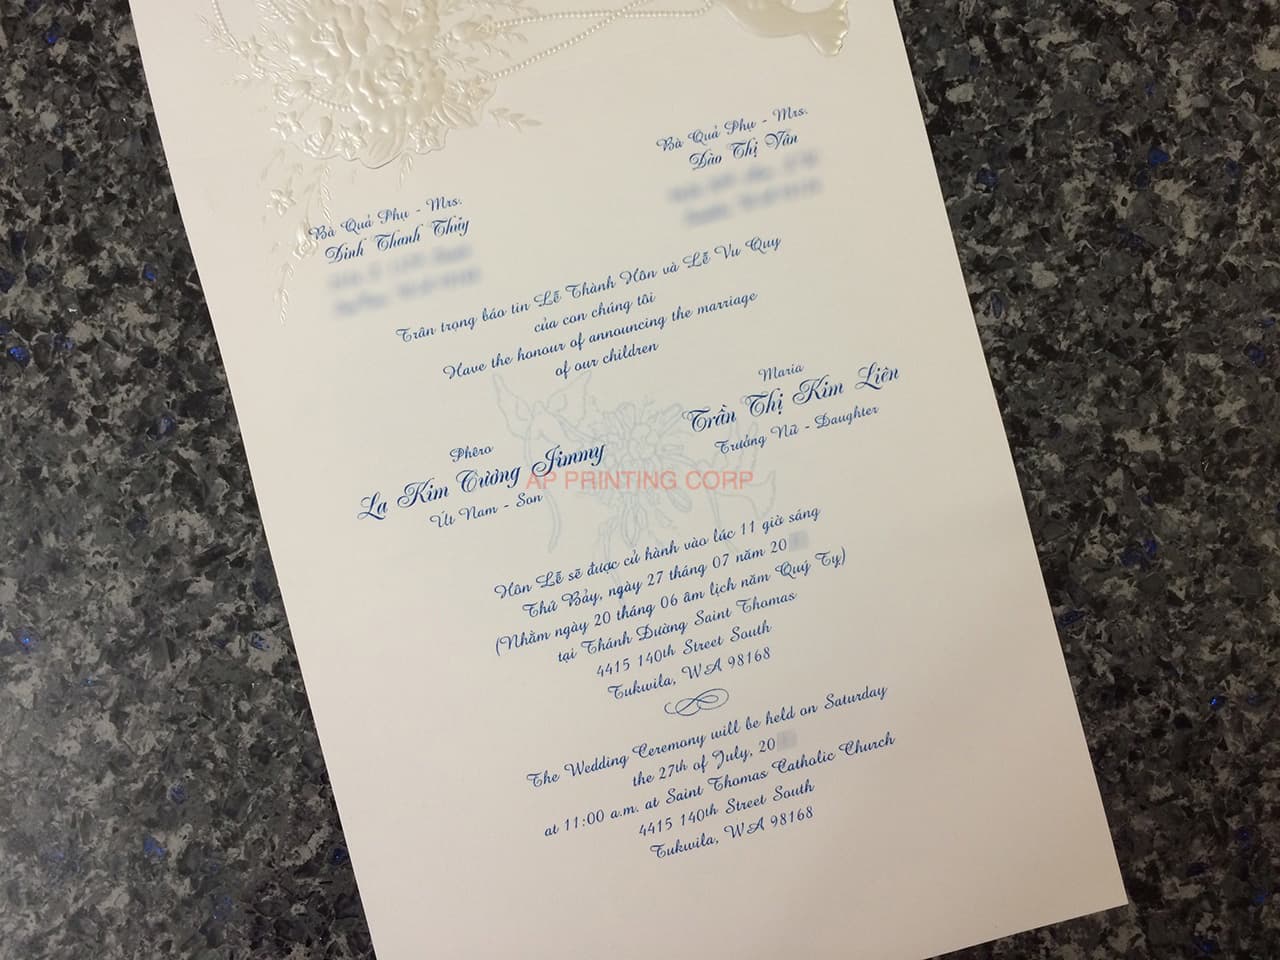 Bà Quả Phụ - Mrs.
Đào Thị Vân
Bà Quả Phụ - Mrs.
Đinh Thanh Thủy
Trân trọng báo tin Lễ Thành Hôn và Lễ Vu Quy
của con chúng tôi
Have the honour of announcing the marriage
of our children
Maria
Trần Thị Kim Liên
Trưởng Nữ - Daughter
Phêro
La Kim Cương Jimmy
Út Nam - Son
AP PRINTING CORP
Hôn Lễ sẽ được cử hành vào lúc 11 giờ sáng
Thứ Bảy, ngày 27 tháng 07 năm 20
(Nhằm ngày 20 tháng 06 âm lịch năm Quý Tỵ)
tại Thánh Đường Saint Thomas
4415 140th Street South
Tukwila, WA 98168
The Wedding Ceremony will be held on Saturday
the 27th of July, 20
at 11:00 a.m. at Saint Thomas Catholic Church
4415 140th Street South
Tukwila, WA 98168